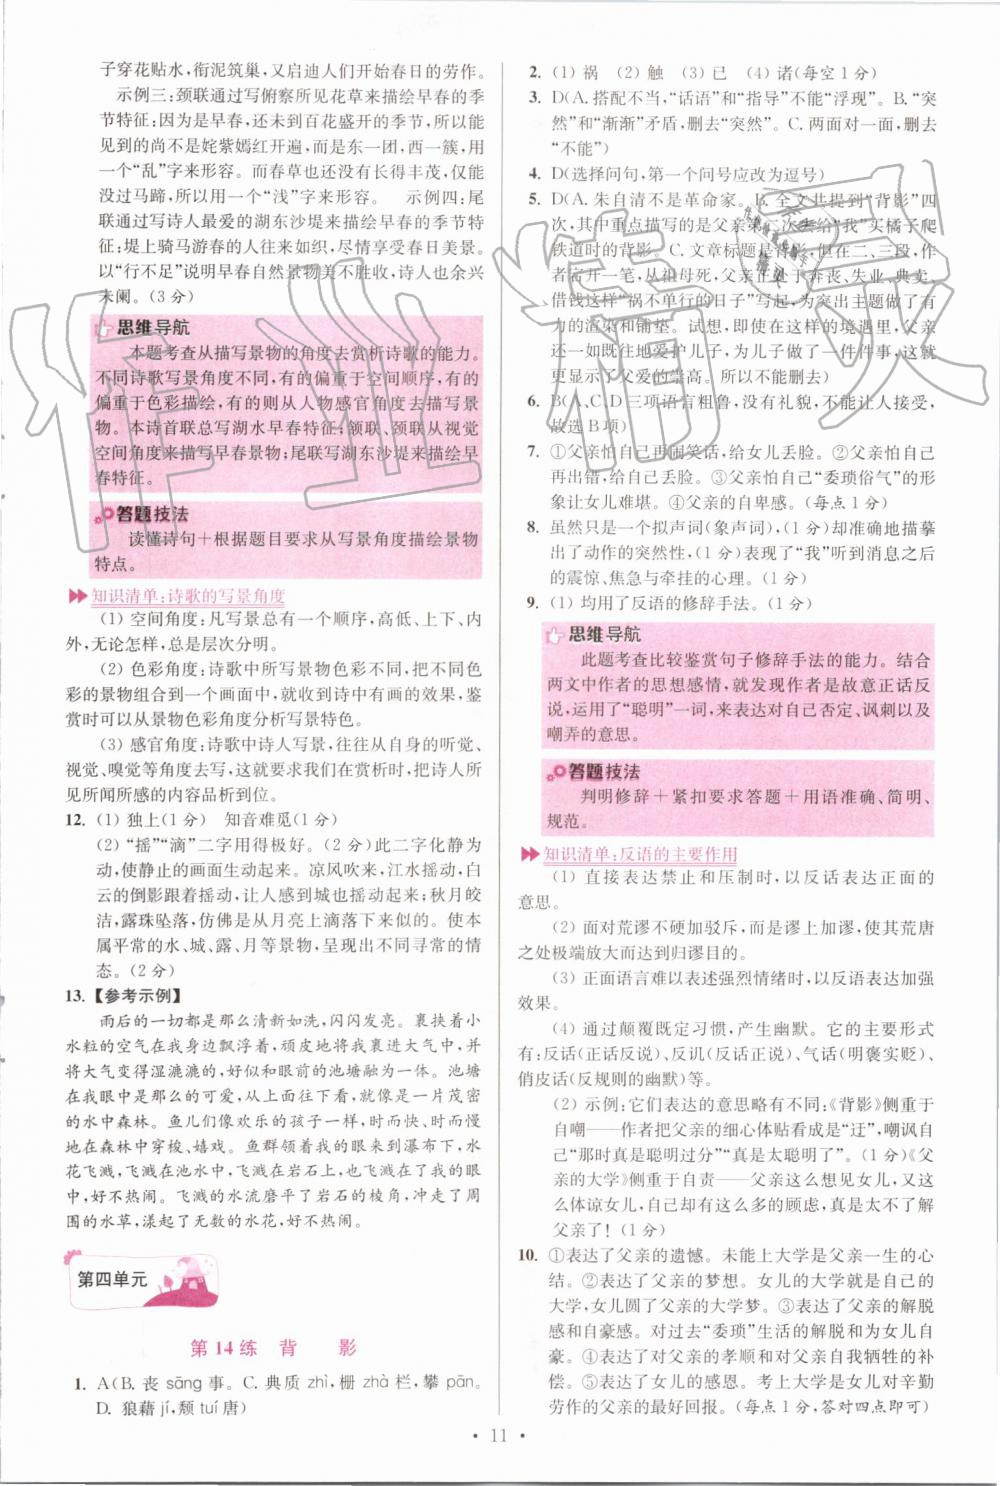 子穿花贴水,衔泥筑巢,又启迪人们开始春日的劳作。
示例三:颈联通过写俯察所见花草来描绘早春的季
节特征:因为是早春,还未到百花盛开的季节,所以能
见到的尚不是姹紫嫣红开遍,而是东一团,西一簇,用
一个“乱”字来形容。而春草也还没有长得丰茂,仅能
没过马蹄,所以用一个“浅”字来形容。 示例四:尾
联通过写诗人最爱的湖东沙堤来描绘早春的季节特
征:堤上骑马游春的人往来如织,尽情享受春日美景。
以“行不足”说明早春自然景物美不胜收,诗人也余兴
未阑。(3 分)
思维导航
本题考查从描写景物的角度去赏析诗歌的能力。
不同诗歌写景角度不同,有的偏重于空间顺序,有的
偏重于色彩描绘,有的则从人物感官角度去描写景
物。本诗首联总写湖水早春特征;颔联、颈联从视觉
空间角度来描写早春景物;尾联写湖东沙堤来描绘早
春特征。
答题技法
读懂诗句+根据题目要求从写景角度描绘景物
特点。
知识清单:诗歌的写景角度
(1) 空间角度:凡写景总有一个顺序,高低、上下、内
外,无论怎样,总是层次分明。
(2) 色彩角度:诗歌中所写景物色彩不同,把不同色
彩的景物组合到一个画面中,就收到诗中有画的效果,鉴
赏时可以从景物色彩角度分析写景特色。
(3) 感官角度:诗歌中诗人写景,往往从自身的听觉、
视觉、嗅觉等角度去写,这就要求我们在赏析时,把诗人所
见所闻所感的内容品析到位。
12. (1) 独上(1 分) 知音难觅(1 分)
(2) “摇”“滴”二字用得极好。(2 分)此二字化静为
动,使静止的画面生动起来。凉风吹来,江水摇动,白
云的倒影跟着摇动,让人感到城也摇动起来;秋月皎
洁,露珠坠落,仿佛是从月亮上滴落下来似的。使本
属平常的水、城、露、月等景物,呈现出不同寻常的情
态。(2 分)
13. 【参考示例】
雨后的一切都是那么清新如洗,闪闪发亮。裹挟着小
水粒的空气在我身边飘浮着,顽皮地将我裹进大气中,并
将大气变得湿漉漉的,好似和眼前的池塘融为一体。池塘
在我眼中是那么的可爱,从上面往下看,像是一片茂密
的水中森林。鱼儿们像欢乐的孩子一样,时而快、时而慢
地在森林中穿梭、嬉戏。鱼群领着我的眼来到瀑布下,水
花飞溅,飞溅在池水中,飞溅在岩石上,也飞溅在了我的眼
中,好不热闹。飞溅的水流磨平了岩石的棱角,冲走了周
围的水草,漾起了无数的水花,好不热闹。
第四单元
第 14 练 背 影
1. A(B. 丧 sāng 事。C. 典质 zhì,栅 zhà 栏,攀 pān。
D. 狼藉 jí,颓 tuí 唐)
2. (1) 祸 (2) 触 (3) 已 (4) 诸(每空 1 分)
3. D(A. 搭配不当,“话语”和“指导”不能“浮现”。B. “突
然”和“渐渐”矛盾,删去“突然”。C. 两面对一面,删去
“不能”)
4. D(选择问句,第一个问号应改为逗号)
5. D(A. 朱自清不是革命家。B. 全文共提到“背影”四
次,其中重点描写的是父亲第二次去给“我”买橘子爬
铁道时的背影。C. 文章标题是背影,但在二、三段,作
者宕开一笔,从祖母死,父亲正处于奔丧、失业、典卖、
借钱这样“祸不单行的日子”写起,为突出主题做了有
力的渲染和铺垫。试想,即使在这样的境遇里,父亲
还一如既往地爱护儿子,为儿子做了一件件事,这就
更显示了父爱的崇高。所以不能删去)
6. B(A、C、D 三项语言粗鲁,没有礼貌,不能让人接受,
故选 B 项)
7. ①父亲怕自己再闹笑话,给女儿丢脸。②父亲怕自己
再出错,给自己丢脸。③父亲怕自己“委琐俗气”的形
象让女儿难堪。④父亲的自卑感。(每点 1 分)
8. 虽然只是一个拟声词(象声词),(1 分)却准确地描摹
出了动作的突然性,(1 分)表现了“我”听到消息之后
的震惊、焦急与牵挂的心理。(1 分)
9. (1) 均用了反语的修辞手法。(1 分)
思维导航
此题考查比较鉴赏句子修辞手法的能力。结合
两文中作者的思想感情,就发现作者是故意正话反
说,运用了“聪明”一词,来表达对自己否定、讽刺以及
嘲弄的意思。
答题技法
判明修辞+紧扣要求答题+用语准确、简明、
规范。
知识清单:反语的主要作用
(1) 直接表达禁止和压制时,以反话表达正面的
意思。
(2) 面对荒谬不硬加驳斥,而是谬上加谬,使其荒唐
之处极端放大而达到归谬目的。
(3) 正面语言难以表述强烈情绪时,以反语表达加强
效果。
(4) 通过颠覆既定习惯,产生幽默。它的主要形式
有:反话(正话反说)、反讥(反话正说)、气话(明褒实贬)、
俏皮话(反规则的幽默)等。
(2) 示例:它们表达的意思略有不同:《背影》侧重于
自嘲——作者把父亲的细心体贴看成是“迂”,嘲讽自
己“那时真是聪明过分”“真是太聪明了”。(1 分)《父
亲的大学》侧重于自责——父亲这么想见女儿,又这
么体谅女儿,自己却会有这么多的顾虑,真是太不了解
父亲了!(1 分)
10. ①表达了父亲的遗憾。未能上大学是父亲一生的心
结。②表达了父亲的梦想。女儿的大学就是自己的
大学,女儿圆了父亲的大学梦。③表达了父亲的解脱
感和自豪感。对过去“委琐”生活的解脱和为女儿自
豪。④表达了父亲的孝顺和对父亲自我牺牲的补
偿。⑤表达了女儿的感恩。考上大学是女儿对辛勤
劳作的父亲的最好回报。(每点 1 分,答对四点即可)
• 11 •
作业精灵